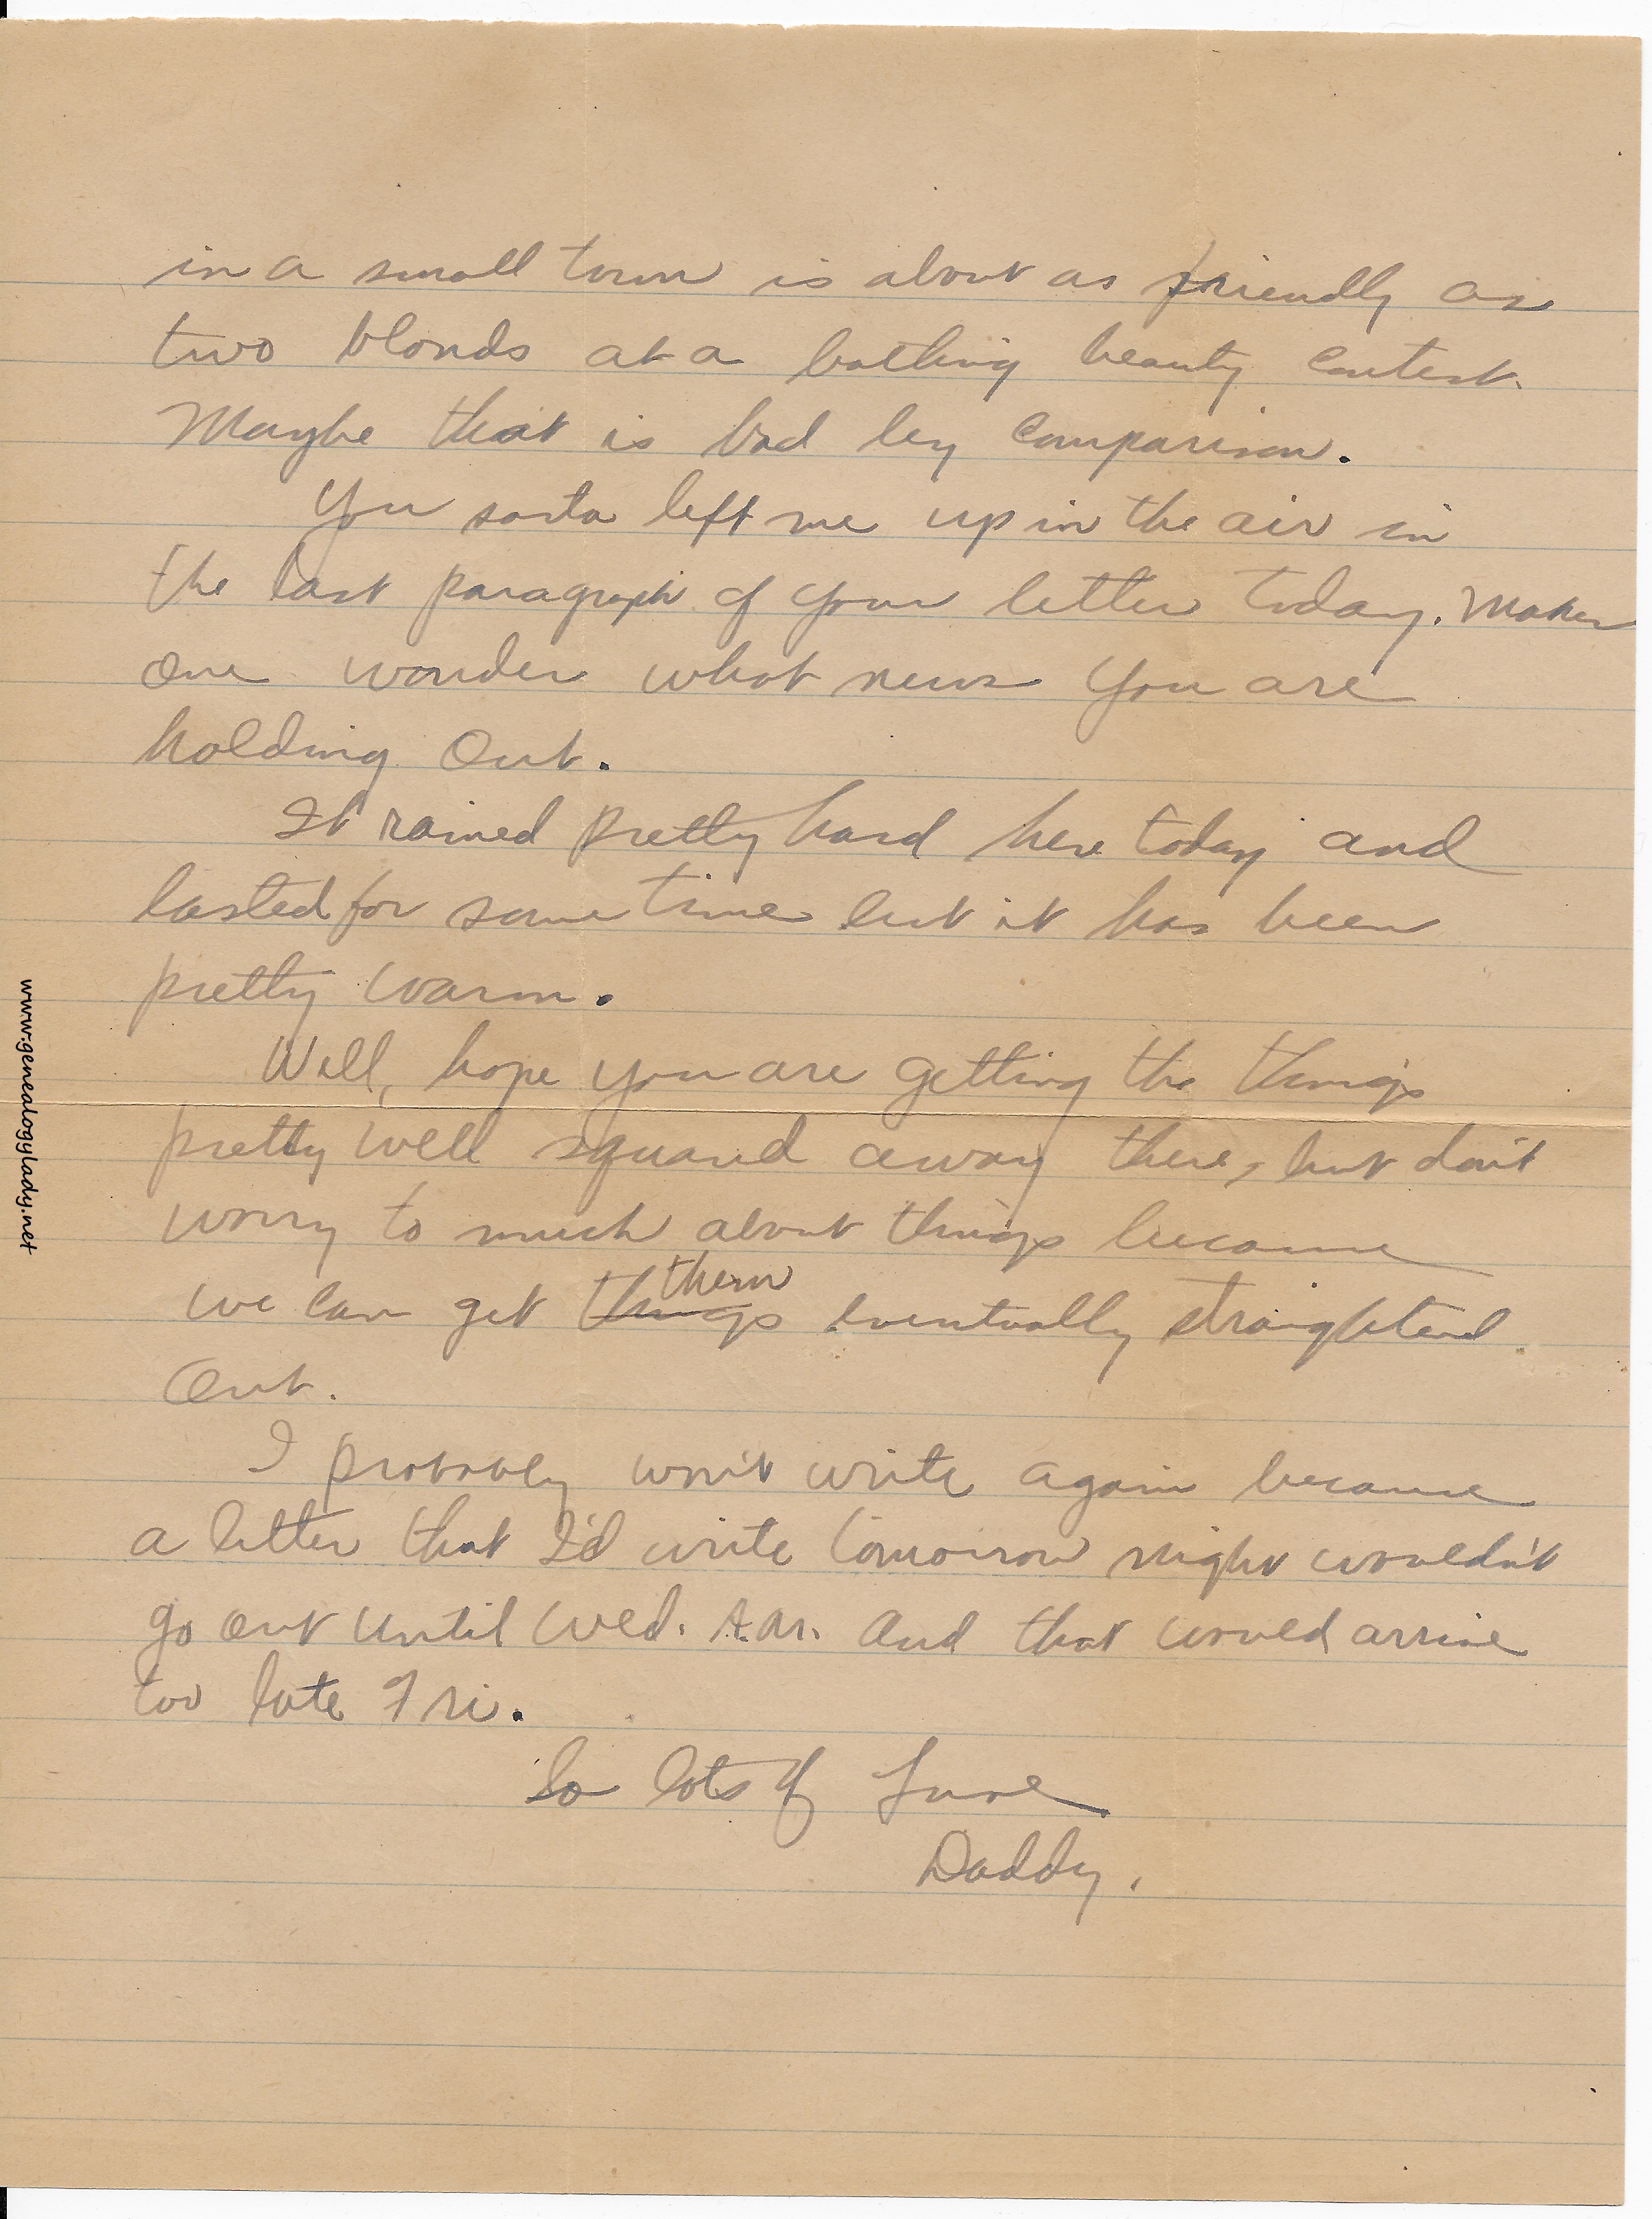 in a small town is about as friendly as
two blonds at a bathing beauty contest.
Maybe that is bad by comparison.
You sorta left me up in the air in
the last paragraph of your letter today. Makes
one wonder what news you are
holding out.
It rained pretty hard here today and
lasted for some time but it has been
pretty warm.
Well, hope you are getting the things
pretty well squared away there, but don't
worry to much about things because
we can get things them eventually straightend
out.
I probably won't write again because
a letter that I'd write tomorrow night wouldn't
go out until Wed. A.M. and that would arrive
too late Fri.
So lots of Love
Daddy.
www.genealogylady.net